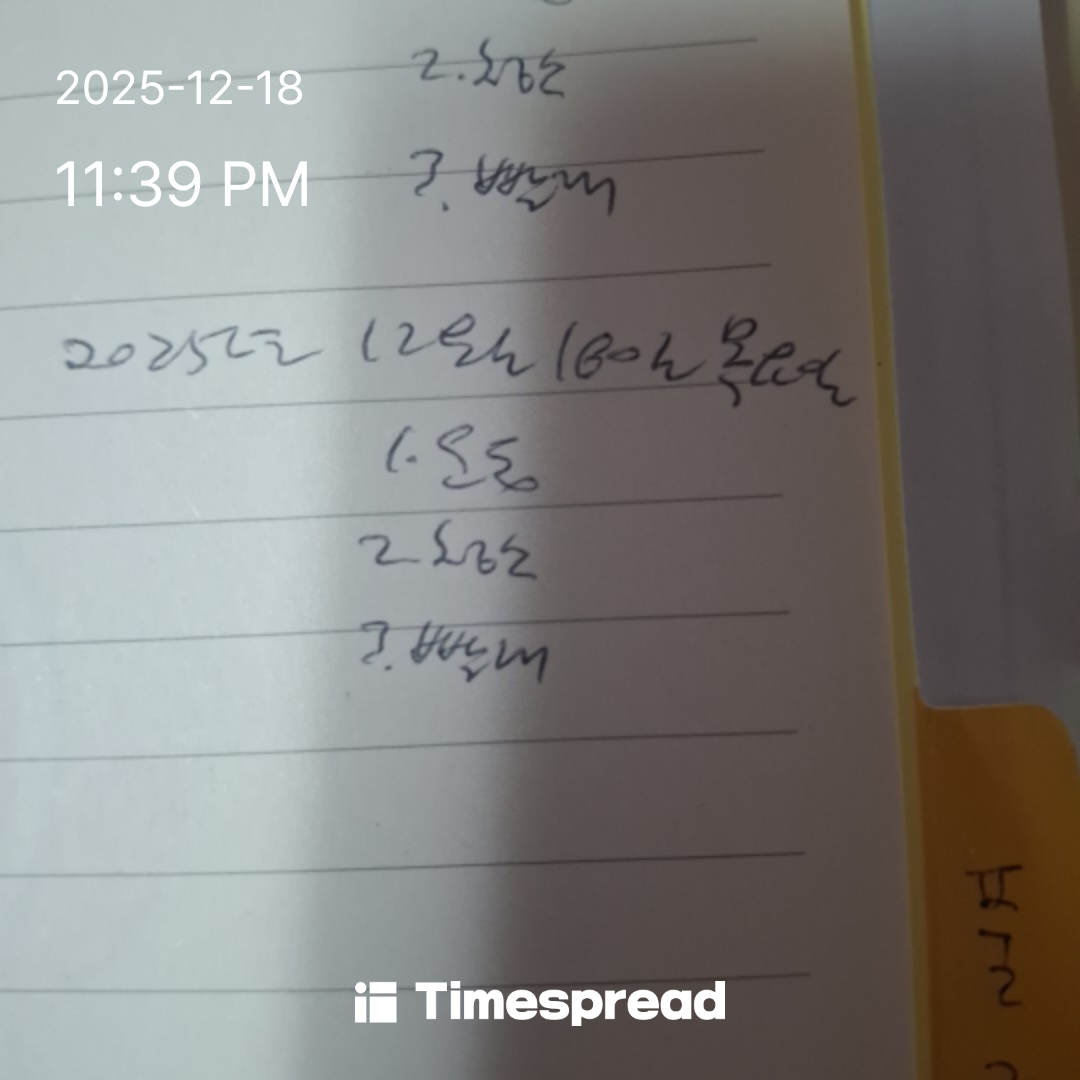 2025-12-18
11:39 PM
2.청소
3.빨래
2025년 12월 18일 목요일
1.운동
2 청소
3.빨래
Timespread